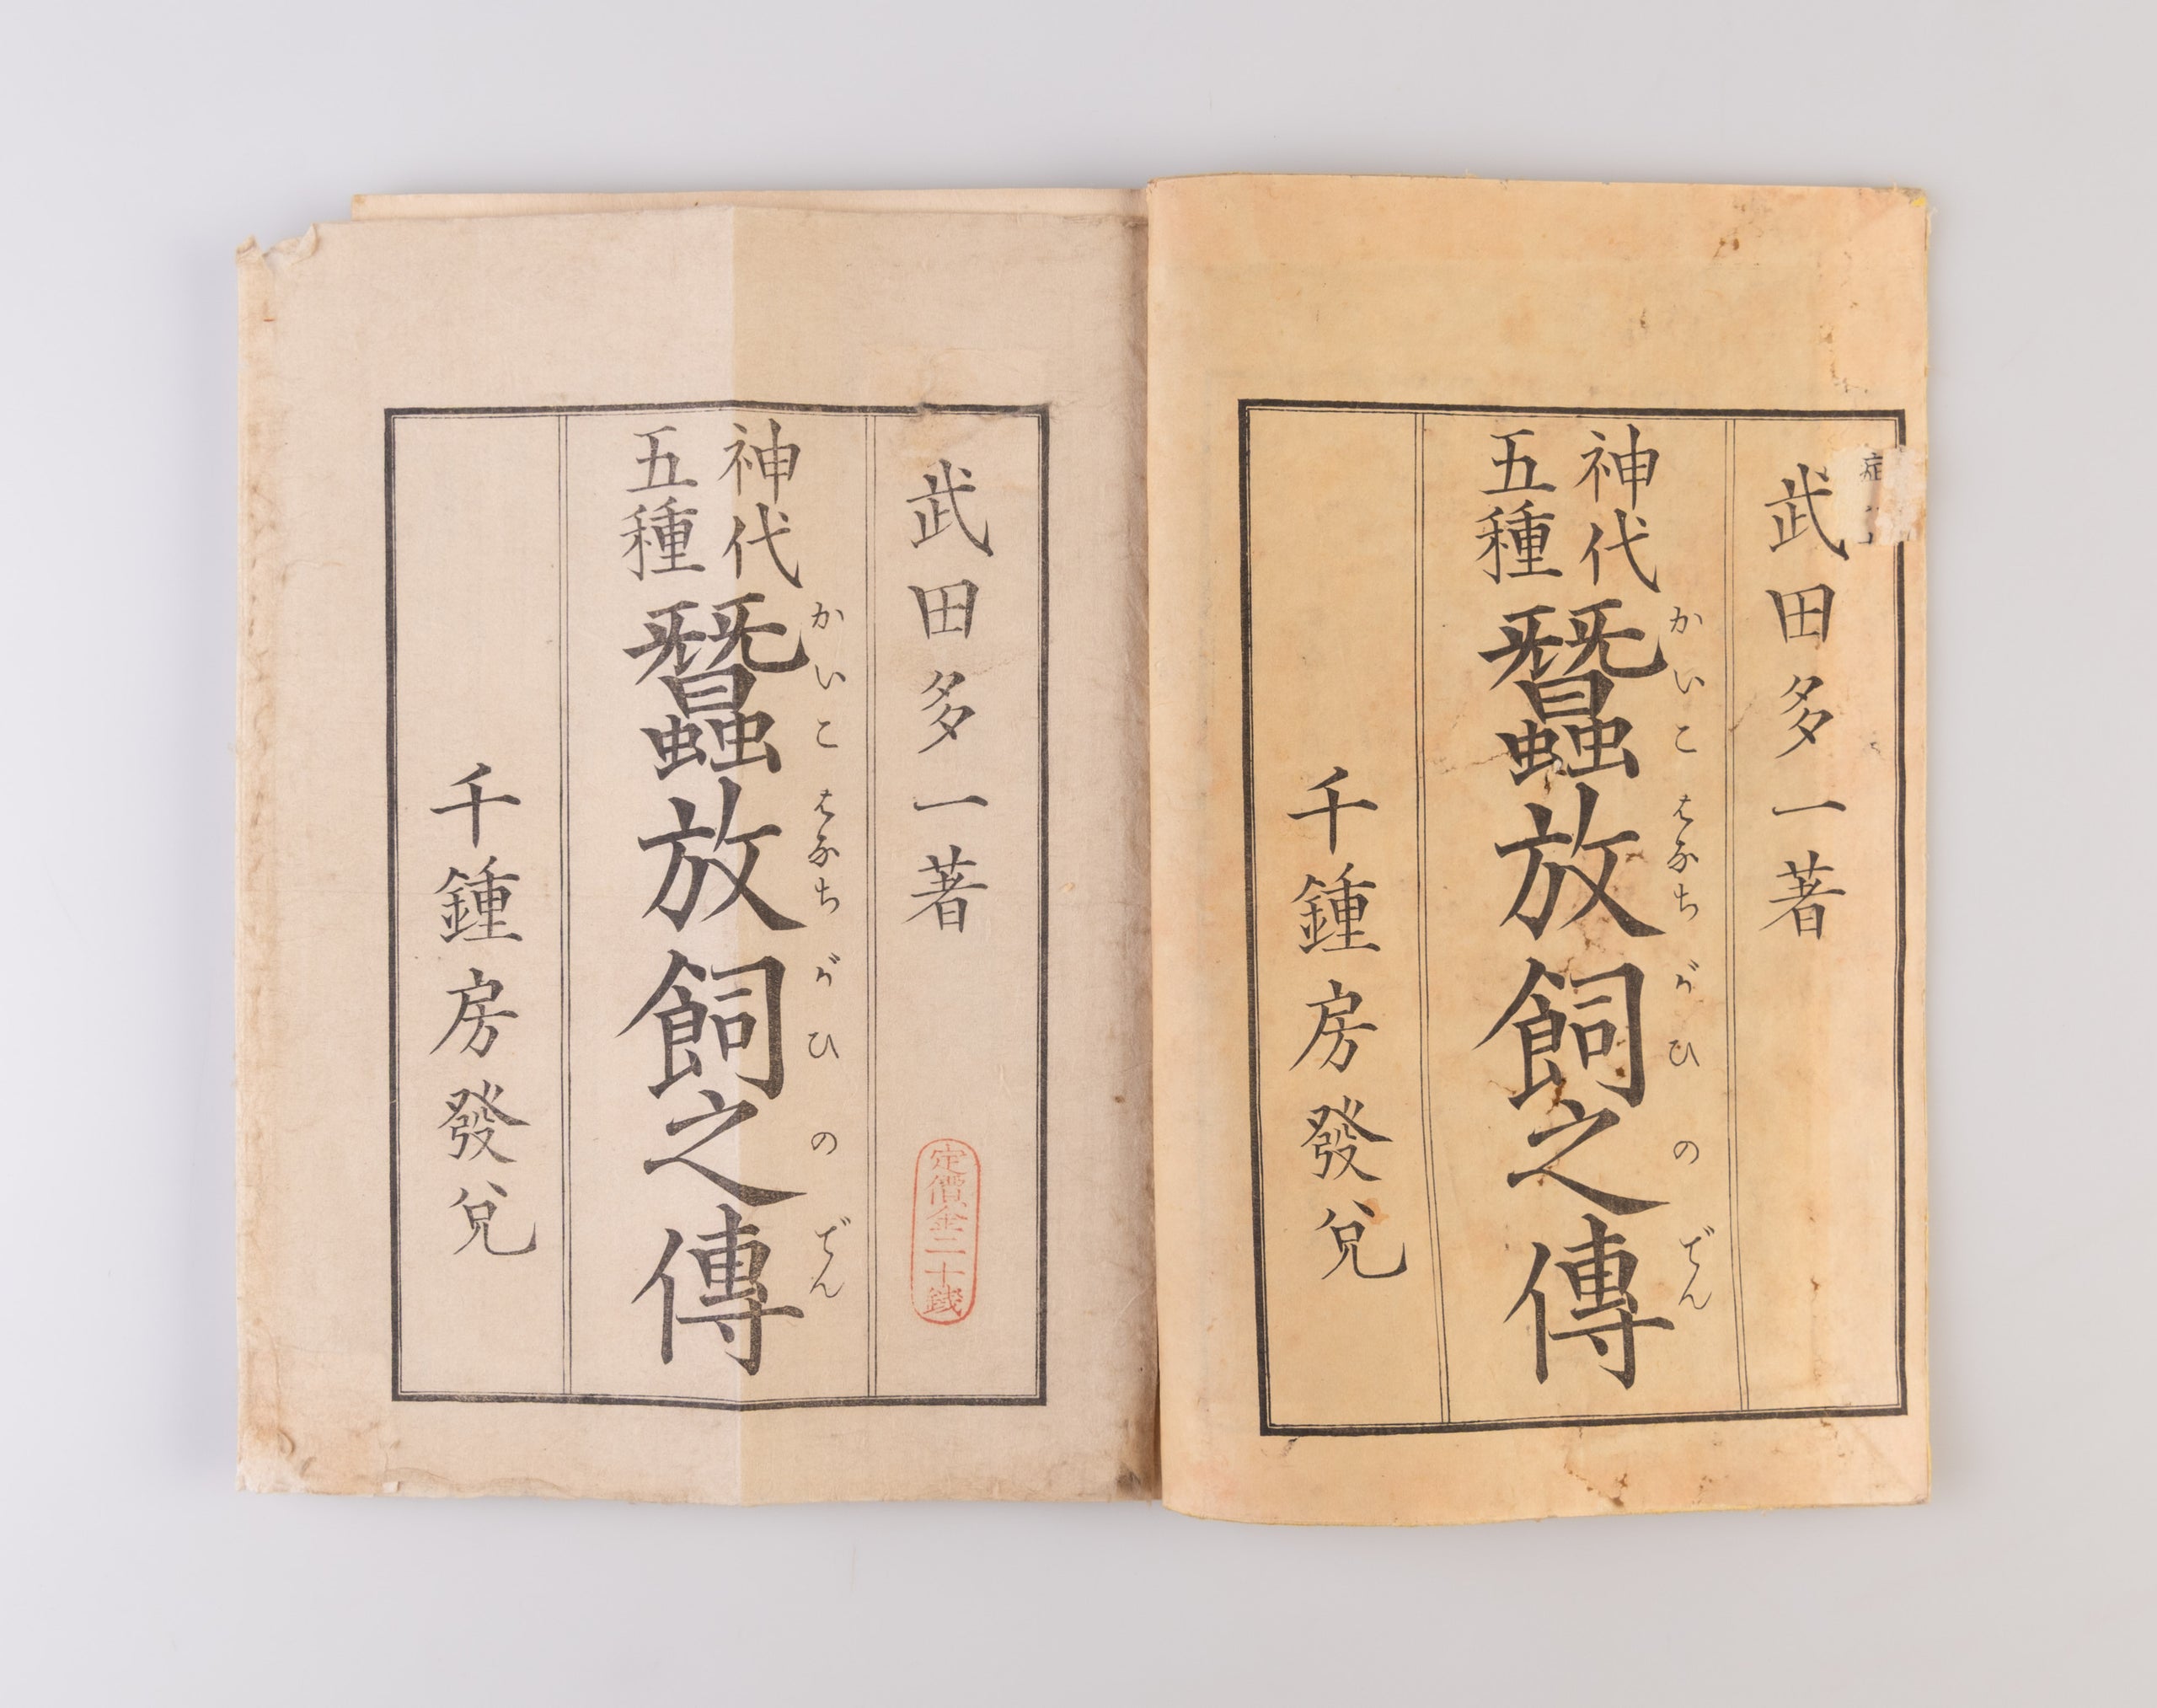 武田多一著
神代
五種
蠶放飼之傳
かいこはなちがひのでん
千鍾房發兌
症
武田多一著
定價金二十錢
神代
五種
蠶放飼之傳
かいこはなちがひのでん
千鍾房發兌